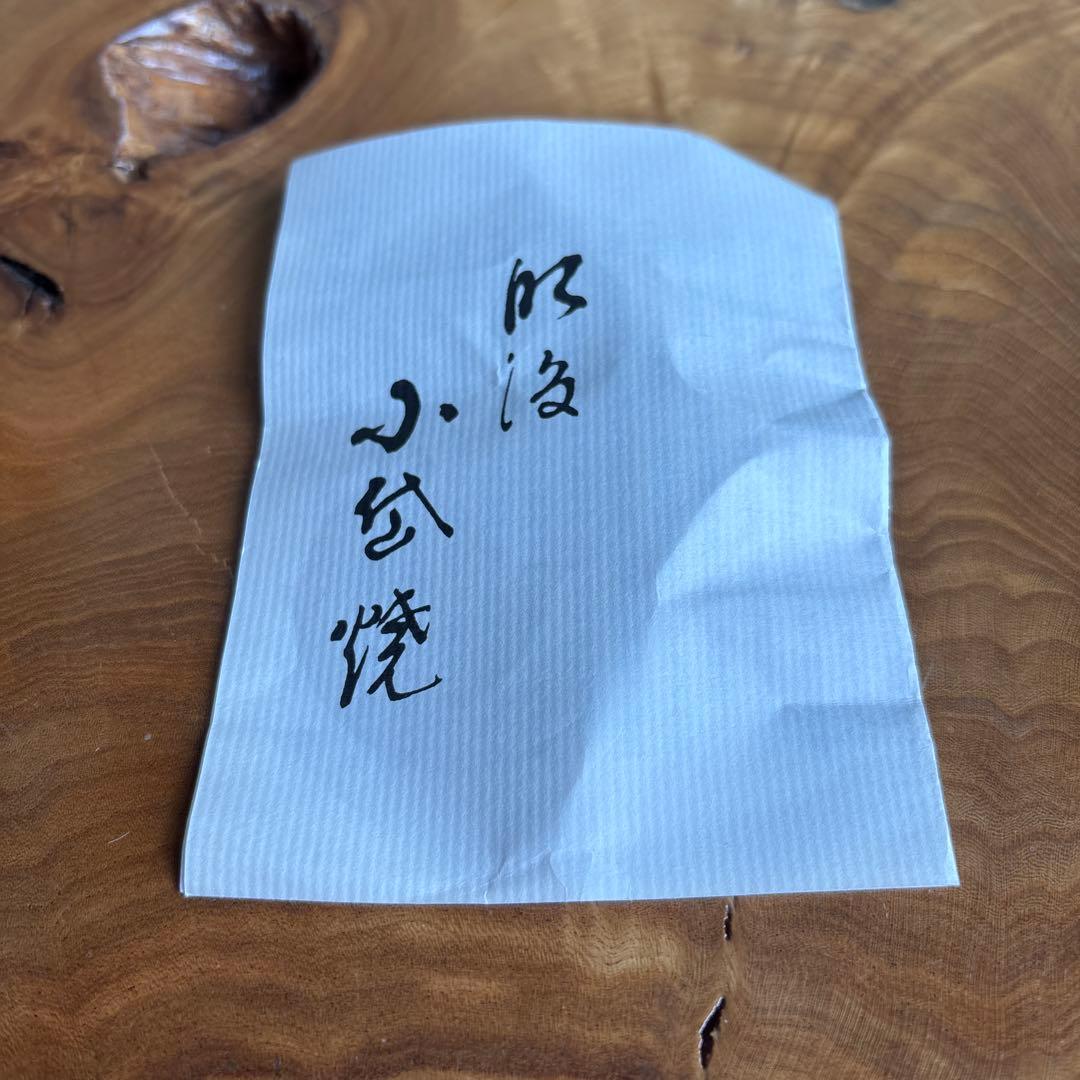 肥後
小岱焼